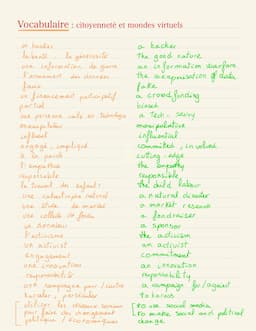 Vocabulaire : citoyenneté et mondes virtuels
un hacker a hacker
la bonté, la générosité The good nature
une information de guerre an information warfare
l'armement des données the weaponisation of data
faux fake
un financement participatif a crowdfunding
partial biased
une personne calée en technologie a tech-savvy
manipulateur manipulative
influent influential
engagé, impliqué committed, involved
à la pointe cutting-edge
l'empathie the empathy
responsable responsible
le travail des enfants the child labour
une catastrophe naturelle a natural disaster
une étude de marché a market research
une collecte de fonds a fundraiser
un sponsor a sponsor
l'activisme the activism
un activist an activist
engagement commitment
une innovation an innovation
responsabilité responsibility
une campagne pour / contre a campaign for/against
harceler, persécuter to harass
utiliser les réseaux sociaux to use social media
pour faire des changements to make social and political
politique / économiques change